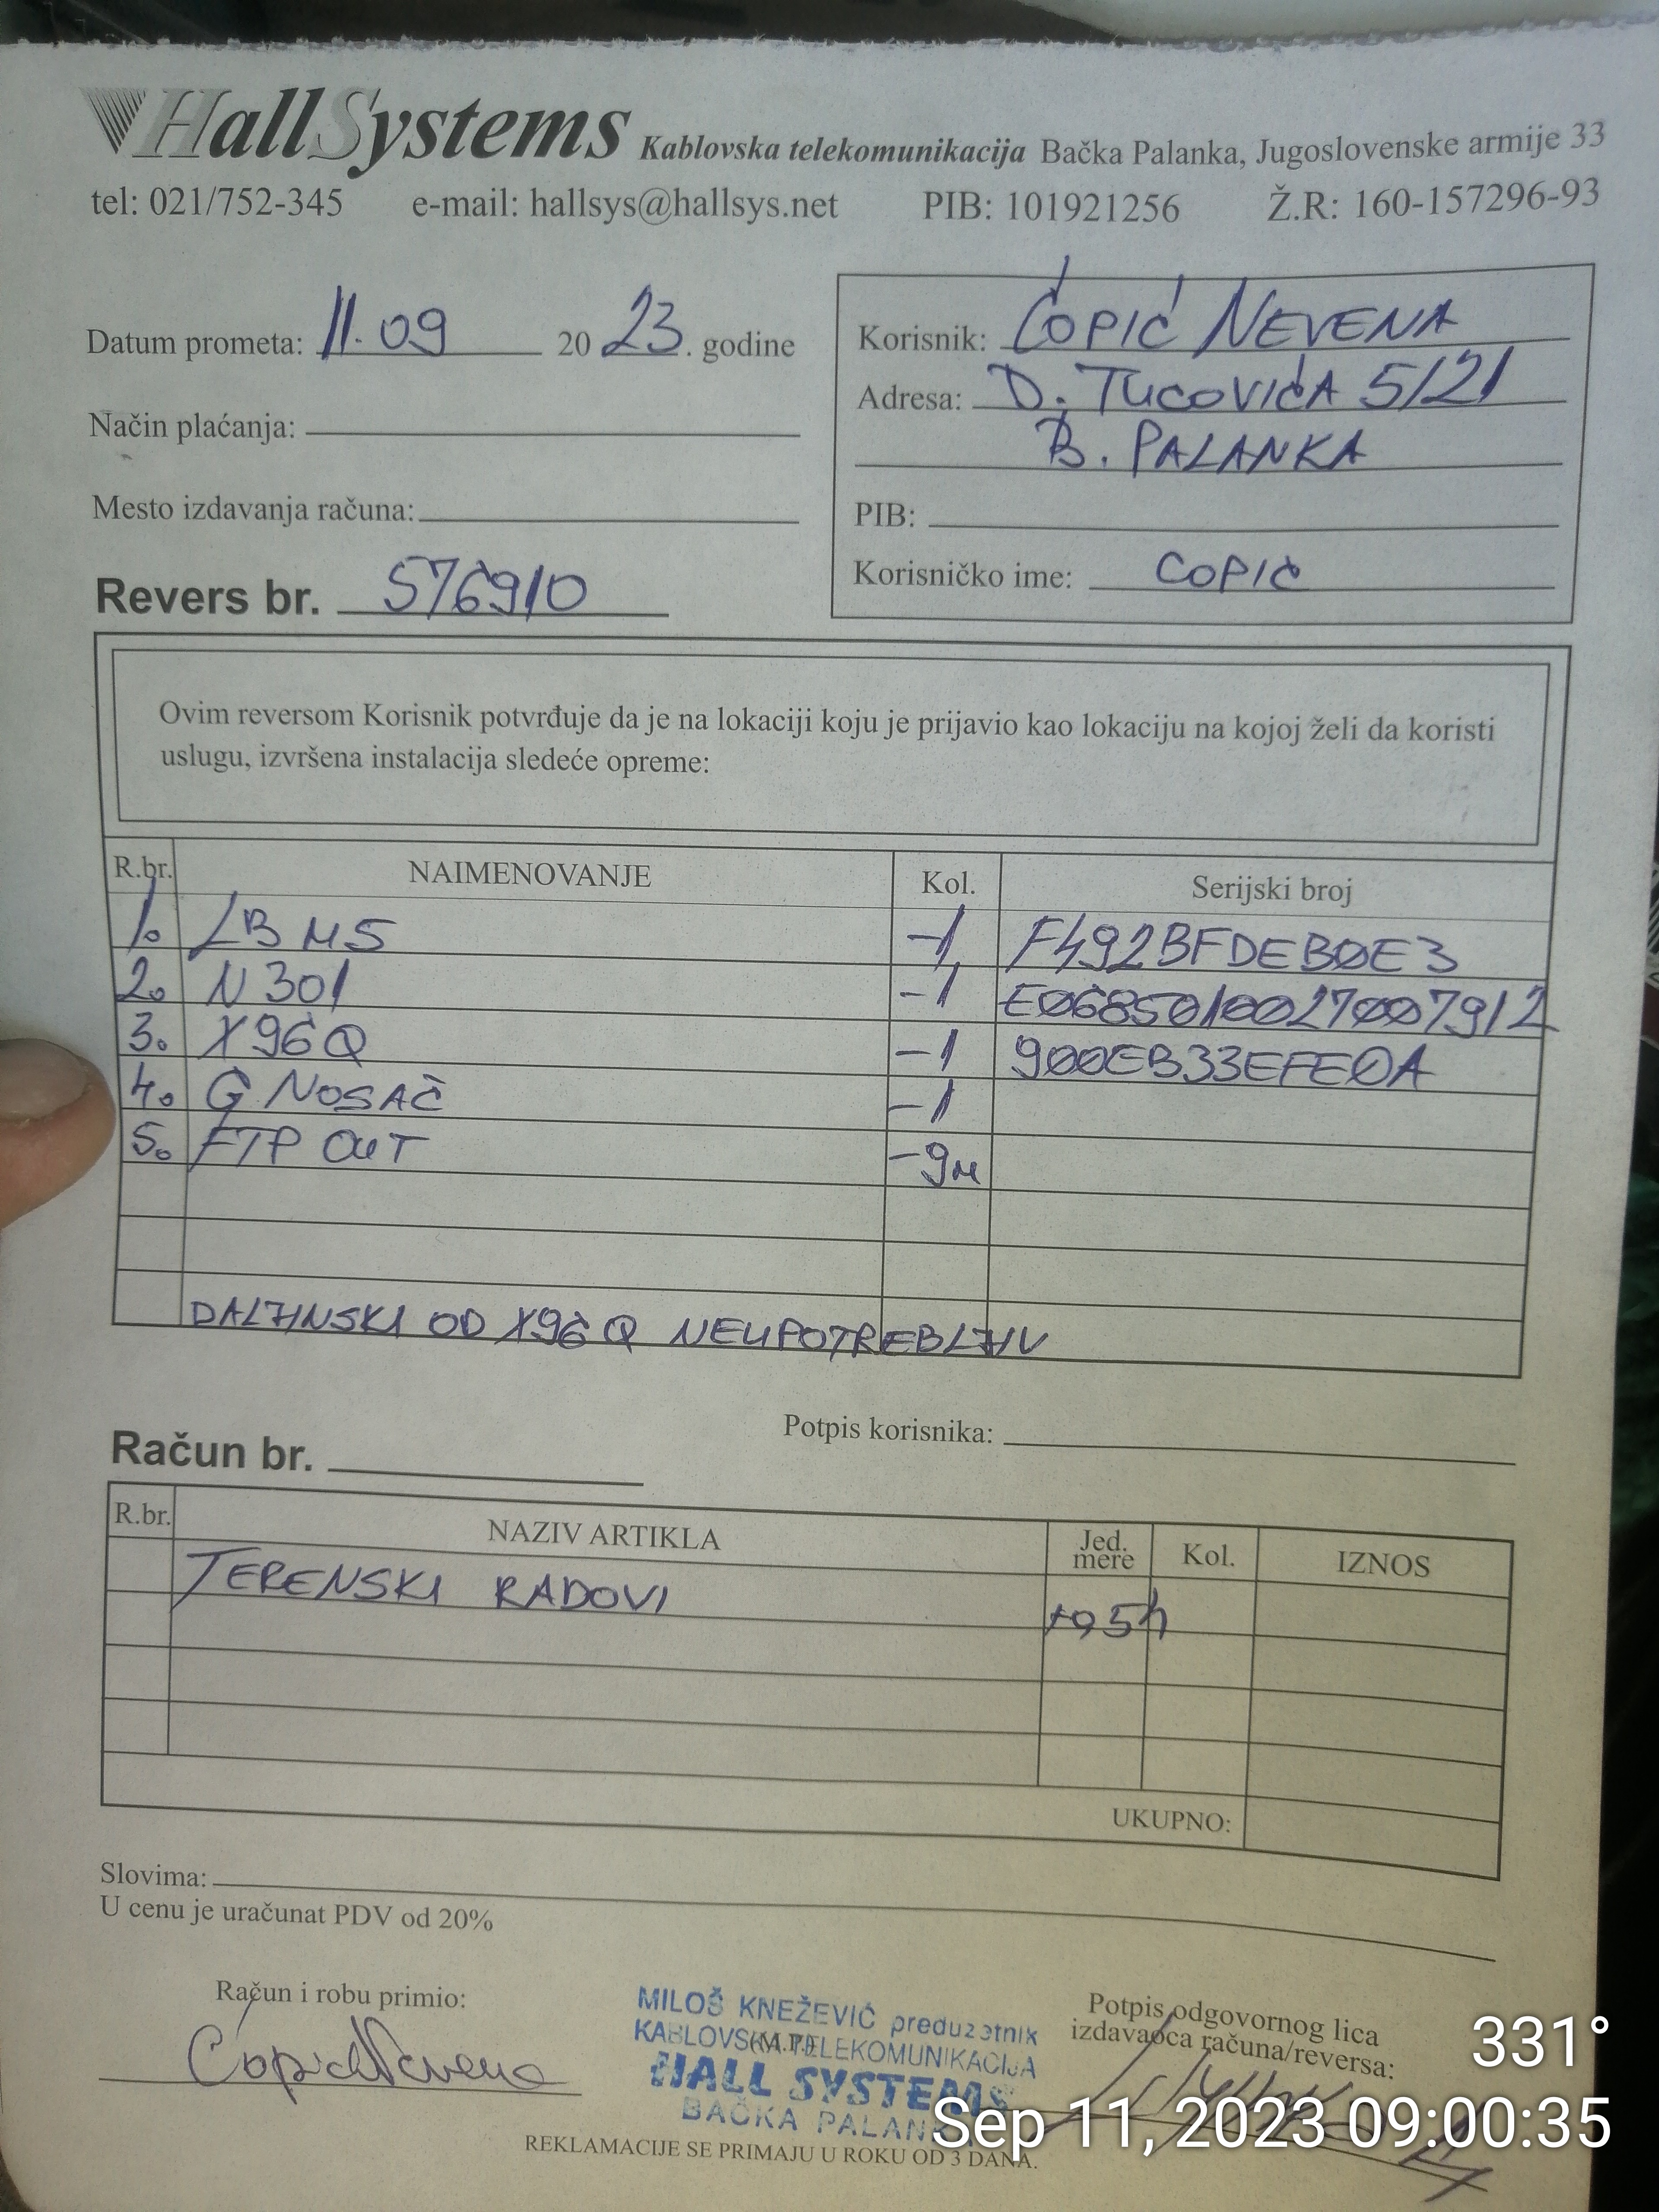 HallSystems Kablovska telekomunikacija Bačka Palanka, Jugoslovenske armije 33
tel: 021/752-345 e-mail: hallsys@hallsys.net PIB: 101921256 Ž.R: 160-157296-93
Datum prometa: 11.09 2023. godine
Način plaćanja:
Mesto izdavanja računa:
Revers br. 576910
Korisnik: ĆOPIĆ NEVENA
Adresa: D. TUCOVIĆA 5/21
B. PALANKA
PIB:
Korisničko ime: COPIC
Ovim reversom Korisnik potvrđuje da je na lokaciji koju je prijavio kao lokaciju na kojoj želi da koristi
uslugu, izvršena instalacija sledeće opreme:
R.br. NAIMENOVANJE Kol. Serijski broj
1. LB M5 -1 F492BFDEB0E3
2. N301 -1 E0685010027007912
3. X96Q -1 900EB33EFE0A
4. G NOSAČ -1
5. FTP OUT -9m
DALJINSKI OD X96Q NEUPOTREBLJIV
Potpis korisnika:
Račun br.
R.br. NAZIV ARTIKLA Jed. mere Kol. IZNOS
TERENSKI RADOVI
UKUPNO:
Slovima:
U cenu je uračunat PDV od 20%
Račun i robu primio:
Ćopić Nevena
MILOŠ KNEŽEVIĆ preduzetnik
KABLOVSKA TELEKOMUNIKACIJA
(M.P.)
HALL SYSTEMS
BAČKA PALANKA
Potpis odgovornog lica
izdavaoca računa/reversa:
REKLAMACIJE SE PRIMAJU U ROKU OD 3 DANA.
331°
Sep 11, 2023 09:00:35